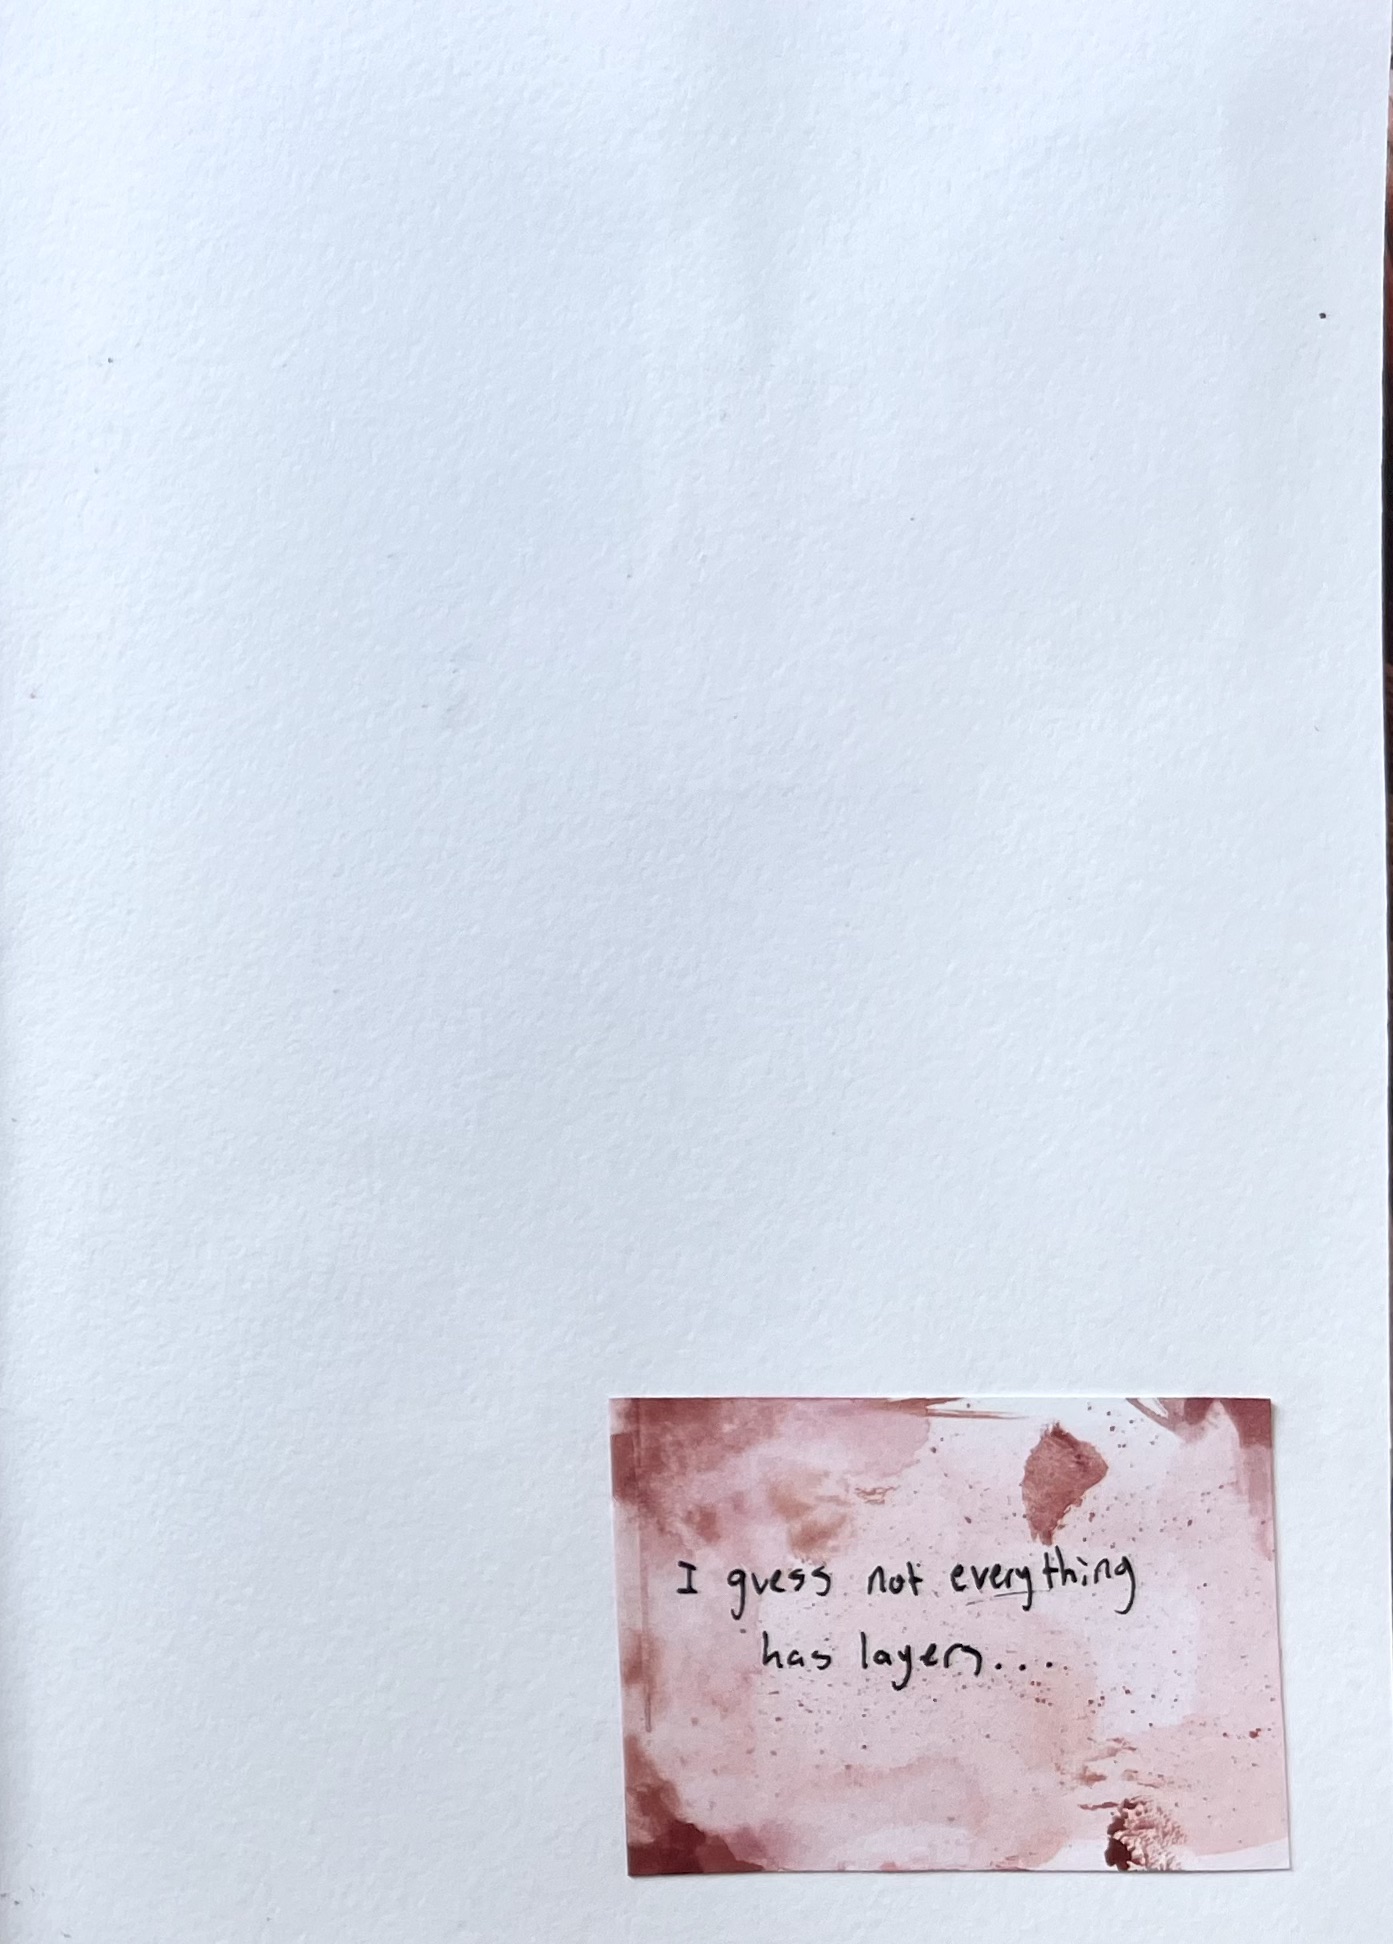 I guess not everything
has layers....